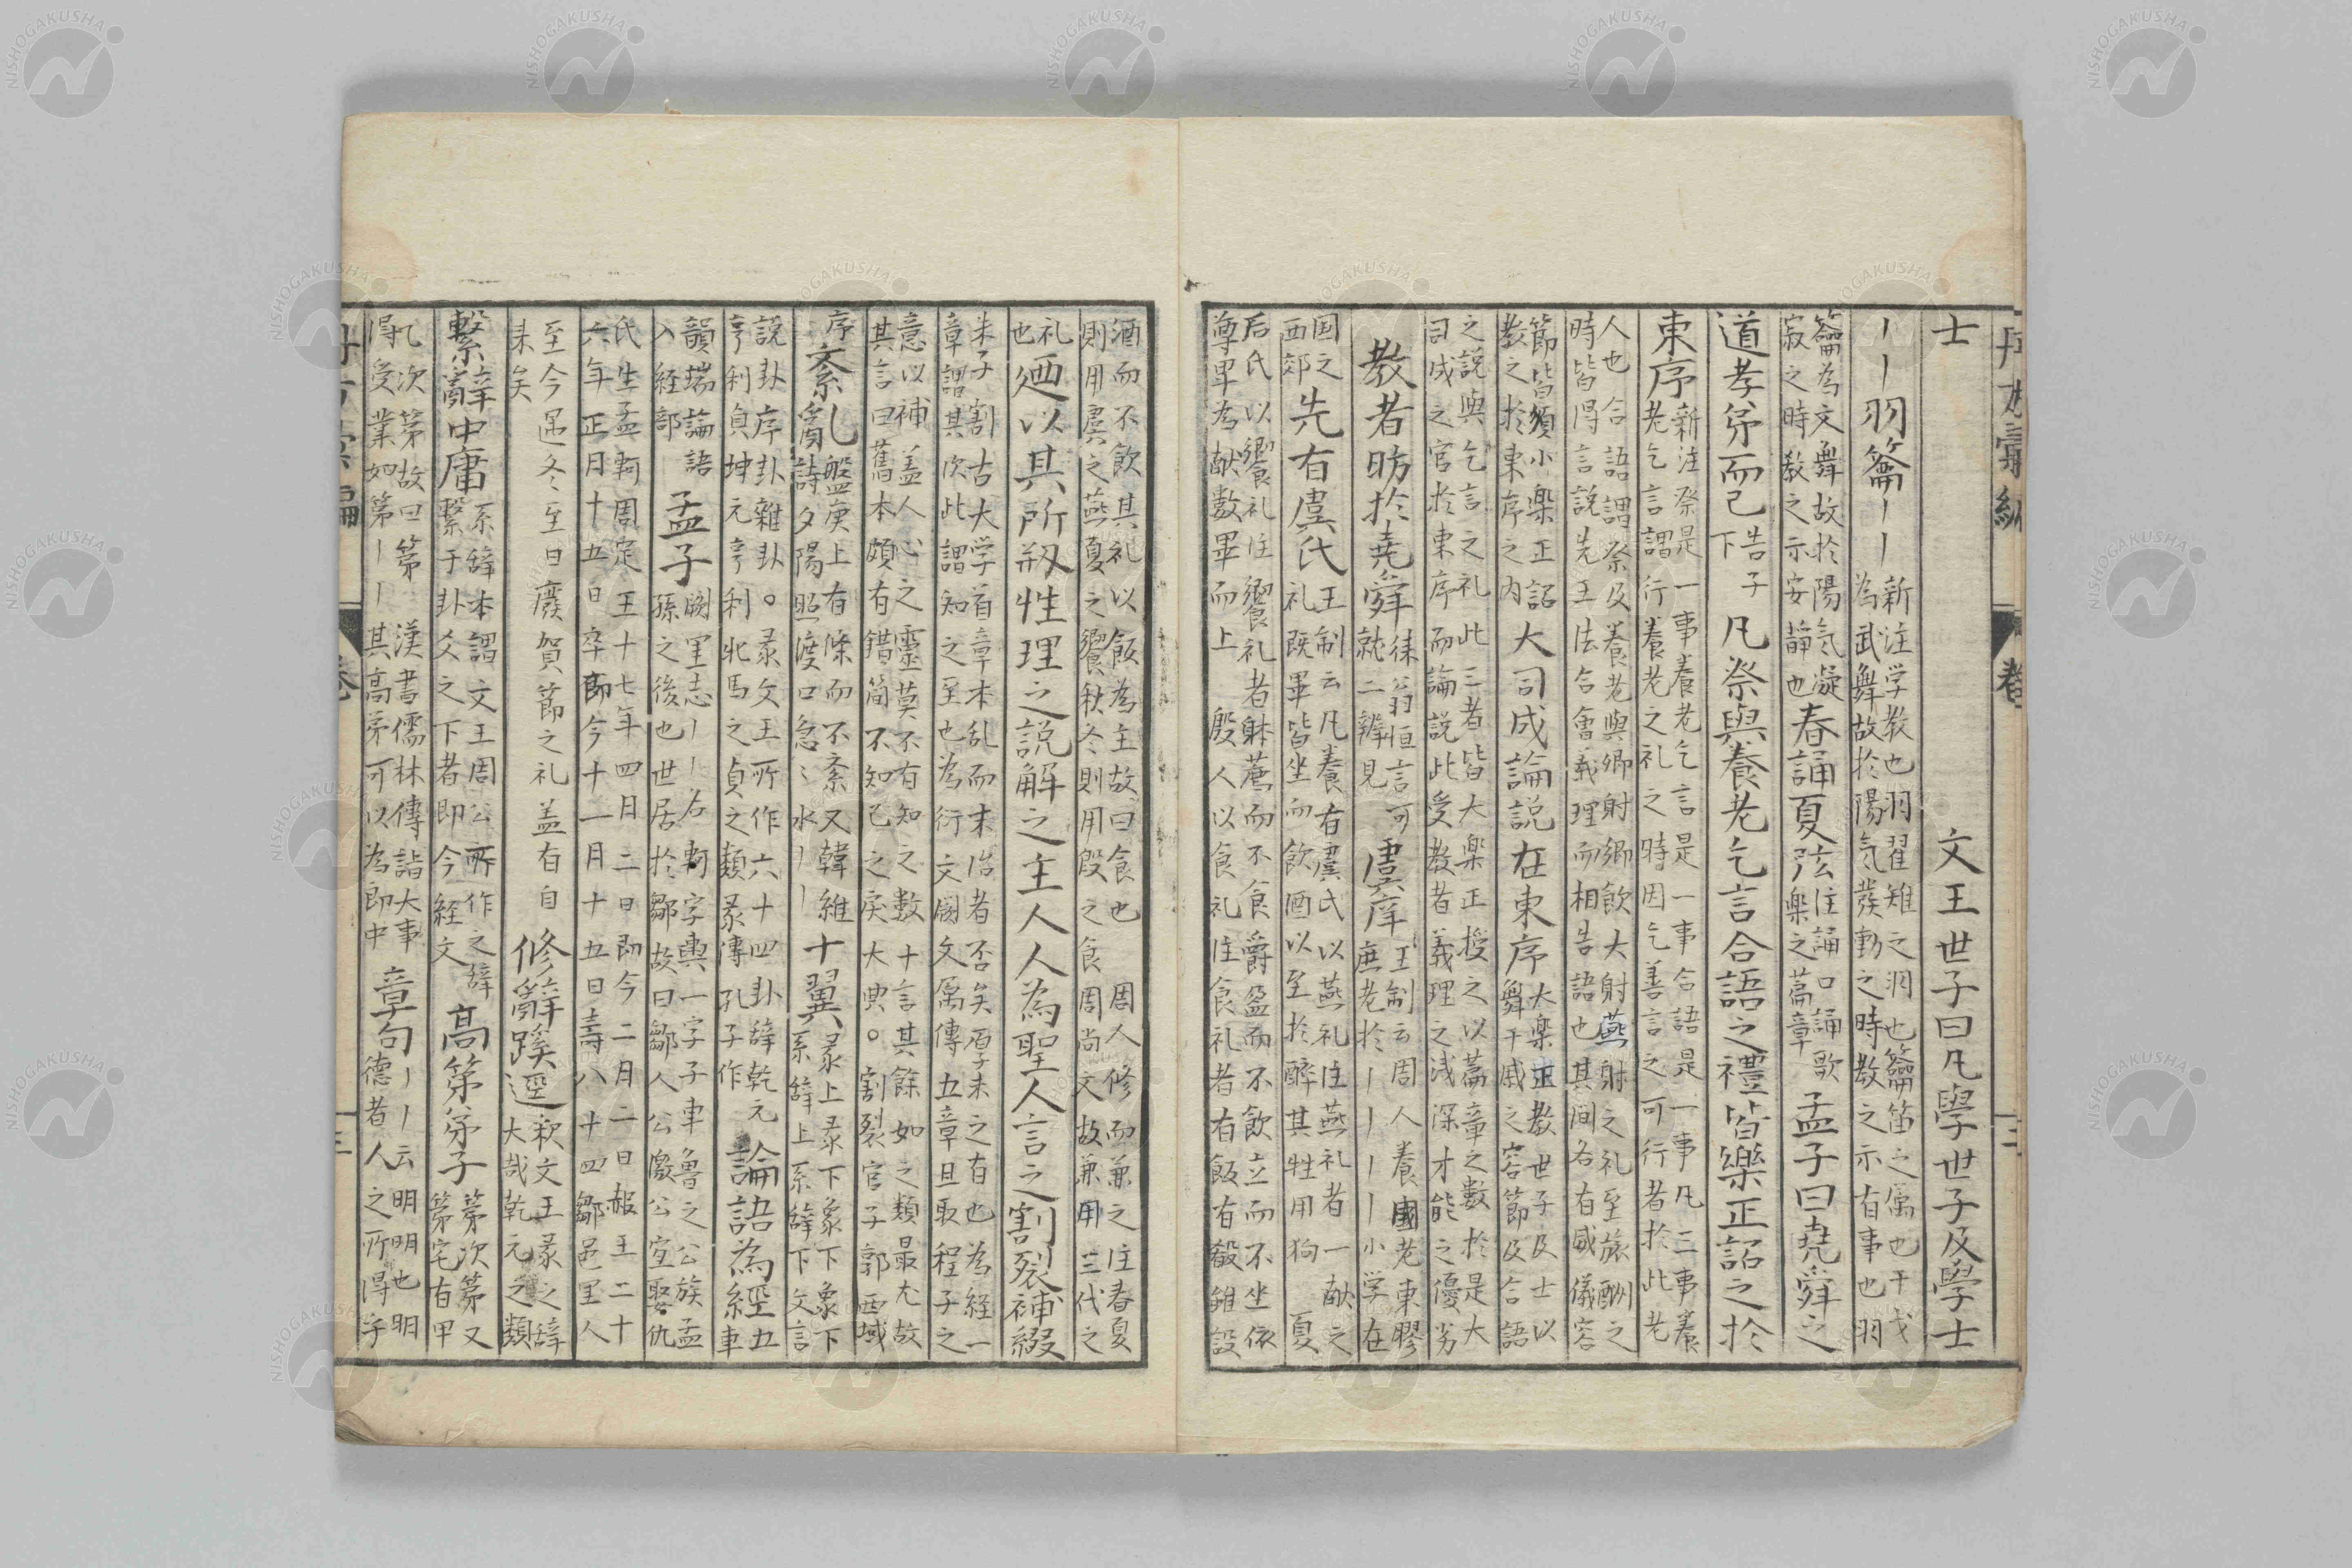 士　　文王世子曰凡學世子及學士
丨丨羽籥丨丨新注学教也羽翟雉之洞也籥笛之属也干戈
為武舞故於陽気蕟動之時教之示有事也羽
籥為文舞故於陽気凝
寂之時教之示安静也
春誦夏弦
注誦口誦歌
楽之萹章
孟子曰堯舜之
道孝弟而已
告子
下
凡祭與養老乞言合語之禮皆樂正詔之於
東序
新注祭是一事養老乞言是一事合語是一事凡三事養
老乞言謂行養老之礼之時因乞善言之可行者於此老
人也合語謂祭及養老與郷射郷飲大射燕射之礼至旅酬之
時皆得言說先王法合會義理而相告語也其間各有威儀容
節皆須小楽正詔
教之於東序之内
大司成論説在東序
大楽正教世子及士以
舞干戚之容節及合語
之説與乞言之礼此三者皆大楽正授之以萹章之数於是大
司成之官於東序而論說此受教者義理之浅深才能之優劣
教者昉於堯舜
徐翁恒言可
就二辨見
虞庠
王制云周人養國老東膠
庶老於丨丨丨丨小学在
国之
西郊
先有虞氏
王制云凡養有虞氏以燕礼注燕礼者一献之
礼既畢皆坐而飲酒以至於醉其牲用狗　夏
后氏以饗礼注饗礼者躰薦而不食爵盈而不飲立而不坐依
尊卑為献數畢而上　殷人以食礼注食礼者有飯有殽雖設
酒而不飲其礼以飯為主故曰食也　周人修而兼之注春夏
則用虞之燕夏之饗秋冬則用殷之食周尚文故兼用三代之
礼
也
廼以其所剏性理之説解之主人人為聖人言之割裂補綴
朱子割古大学首章本乱而末治者否矣厚子未之有也為経一
章謂其次此謂知之至也為衍文闕文属傳五章且取程子之
意以補盖人心之靈莫不有知之数十言其餘如之類最尢故
其言曰舊本頗有錯简不知已之戻大典。割裂官子郭西域
序
紊乱
盤庚上有條而不紊又韓維
詩夕陽照渡口急〻水丨丨
十翼
彖上彖下象下象下
系辞上系辞下文言
説卦序卦雑卦。彖文王所作六十四卦辞乾元
亨利貞坤元亨利牝馬之貞之類彖傳孔子作
論語為經
五
車
韻瑞論語
入経部
孟子
闕里志丨丨名軻字輿一字子車魯之公族孟
孫之後也世居於鄒故曰鄒人公激公宜娶仇
氏生孟軻周定王十七年四月二日即今二月二日赧王二十
六年正月十五日卒即今十一月十五日壽八十四鄒邑里人
至今遇冬至日廢賀節之礼盖有自
来矣
修辭蹊逕
釈文王彖之辞
大哉乾元之類
繋辭中庸
系辞本謂文王周公所作之辞
繋于卦爻之下者即今経文
高第弟子
第次第又
第宅有甲
乙次第故曰第　漢書儒林傳詣大事
得受業如第丨丨其高弟可以為郎中
章句
丨丨云明明也明
德者人之所得乎